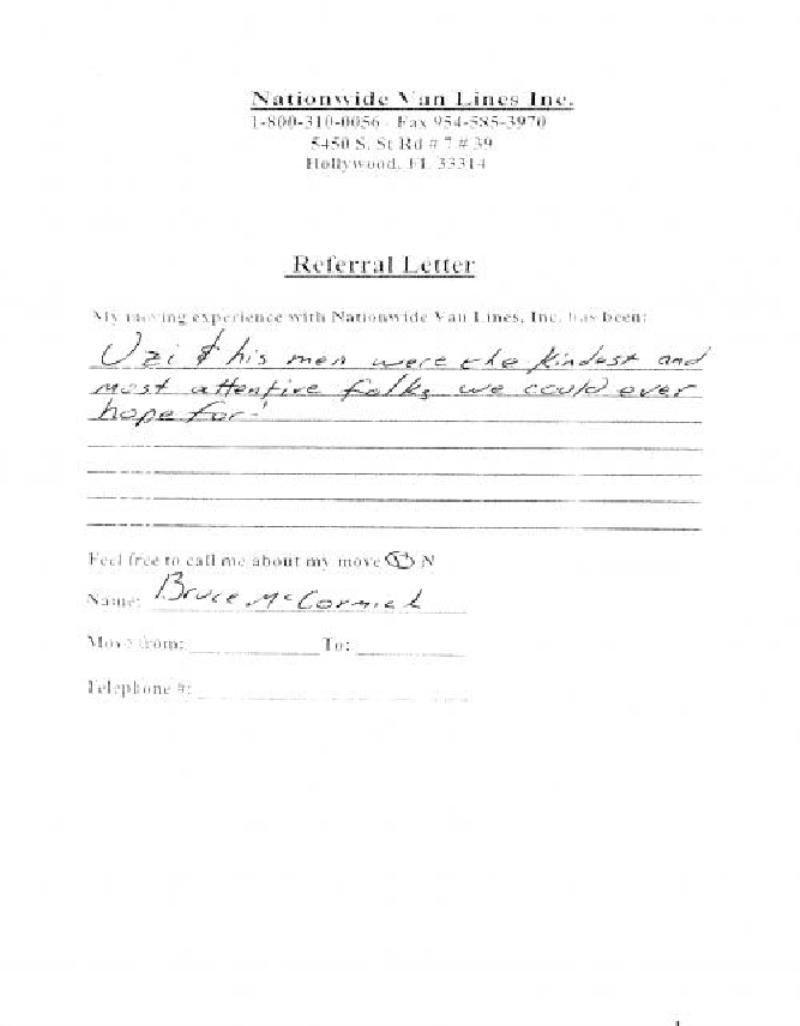 Nationwide Van Lines Inc.
1-800-310-0056 - Fax 954-585-3970
5450 S. St Rd # 7 # 39
Hollywood, FL 33314
Referral Letter
My moving experience with Nationwide Van Lines, Inc. has been:
Uzi & his men were the kindest and
most attentive folks we could ever
hope for!
Feel free to call me about my move Y N
Name: Bruce McCormick
Move from: To:
Telephone #: